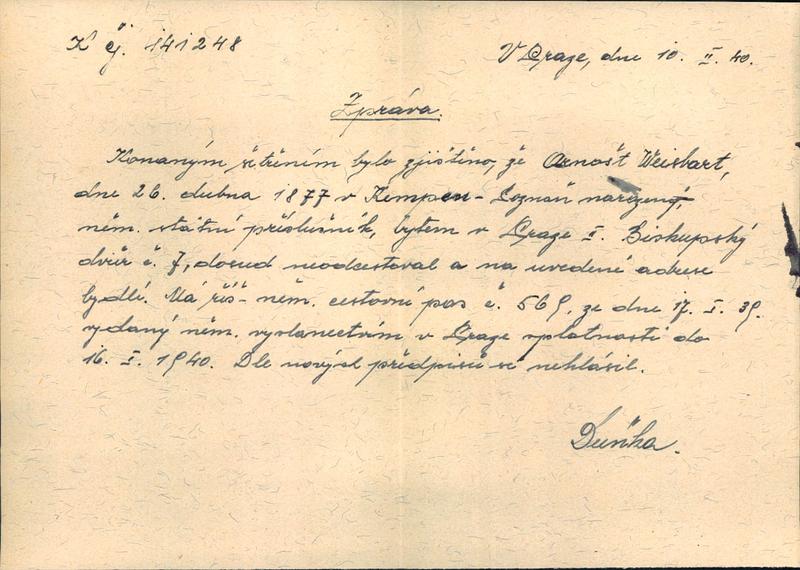 K čj. 141248
V Praze, dne 10. II. 40.
Zpráva.
Konaným šetřením bylo zjištěno, že Arnošt Weisbart,
dne 26. dubna 1877 v Kempen - Poznaň narozený,
něm. státní příslušník, bytem v Praze II. Biskupský
dvůr č. 7, dosud neodcestoval a na uvedené adrese
bydlí. Má říš-něm. cestovní pas č. 569, ze dne 17. I. 39.
vydaný něm. vyslanectvím v Praze splatností do
16. I. 1940. Dle nových předpisů se nehlásil.